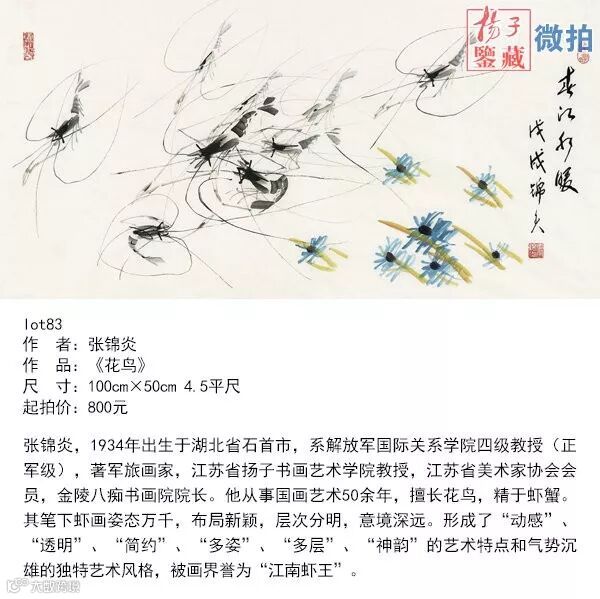 揚子
鑒藏
微拍
春江水暖
戊戌錦炎
lot83
作 者：张锦炎
作 品：《花鸟》
尺 寸：100cm×50cm 4.5平尺
起拍价：800元
张锦炎，1934年出生于湖北省石首市，系解放军国际关系学院四级教授（正
军级），著军旅画家，江苏省扬子书画艺术学院教授，江苏省美术家协会会
员，金陵八痴书画院院长。他从事国画艺术50余年，擅长花鸟，精于虾蟹。
其笔下虾画姿态万千，布局新颖，层次分明，意境深远。形成了“动感”、
“透明”、“简约”、“多姿”、“多层”、“神韵”的艺术特点和气势沉
雄的独特艺术风格，被画界誉为“江南虾王”。
大数跨境